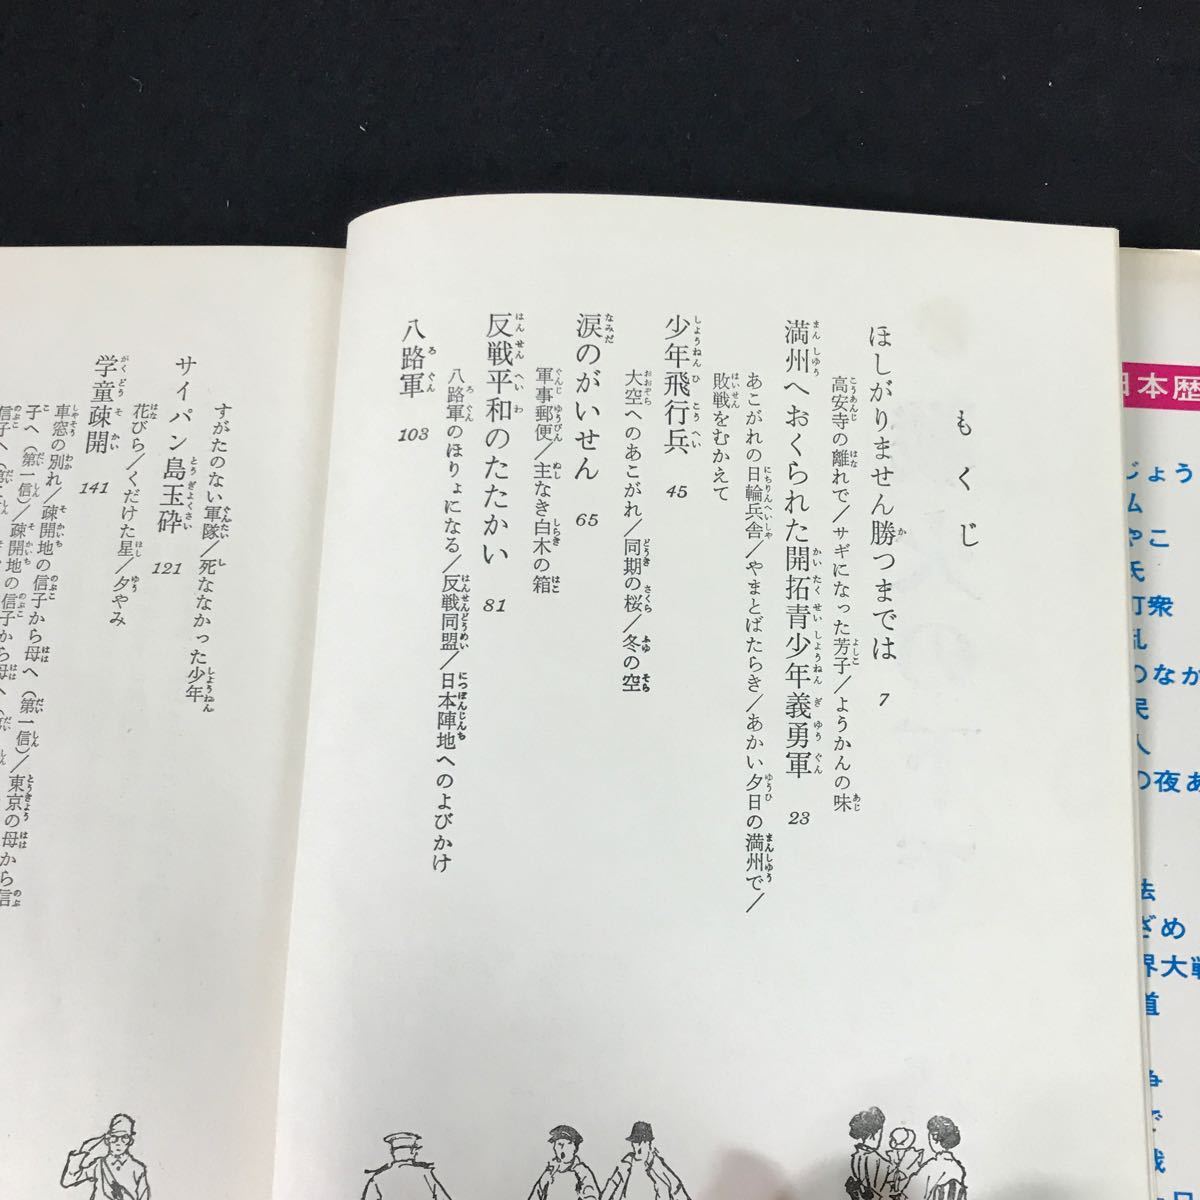 もくじ
ほしがりません勝つまでは 7
高安寺の離れで/サギになった芳子/ようかんの味
満州へおくられた開拓青少年義勇軍 23
あこがれの日輪兵舎/やまとばたらき/あかい夕日の満州で/
敗戦をむかえて
少年飛行兵 45
大空へのあこがれ/同期の桜/冬の空
涙のがいせん 65
軍事郵便/主なき白木の箱
反戦平和のたたかい 81
八路軍のほりょになる/反戦同盟/日本陣地へのよびかけ
八路軍 103
すがたのない軍隊/死ななかった少年
サイパン島玉砕 121
花びら/くだけた星/夕やみ
学童疎開 141
車窓の別れ/疎開地の信子から母へ(第一信)/東京の母から信
子へ(第一信)/疎開地の信子から母へ
日本歴
じょう
ム
やこ
氏
町衆
乱
のなか
民
人
の夜あ
法
ざめ
界大戦
道
争
で
戦